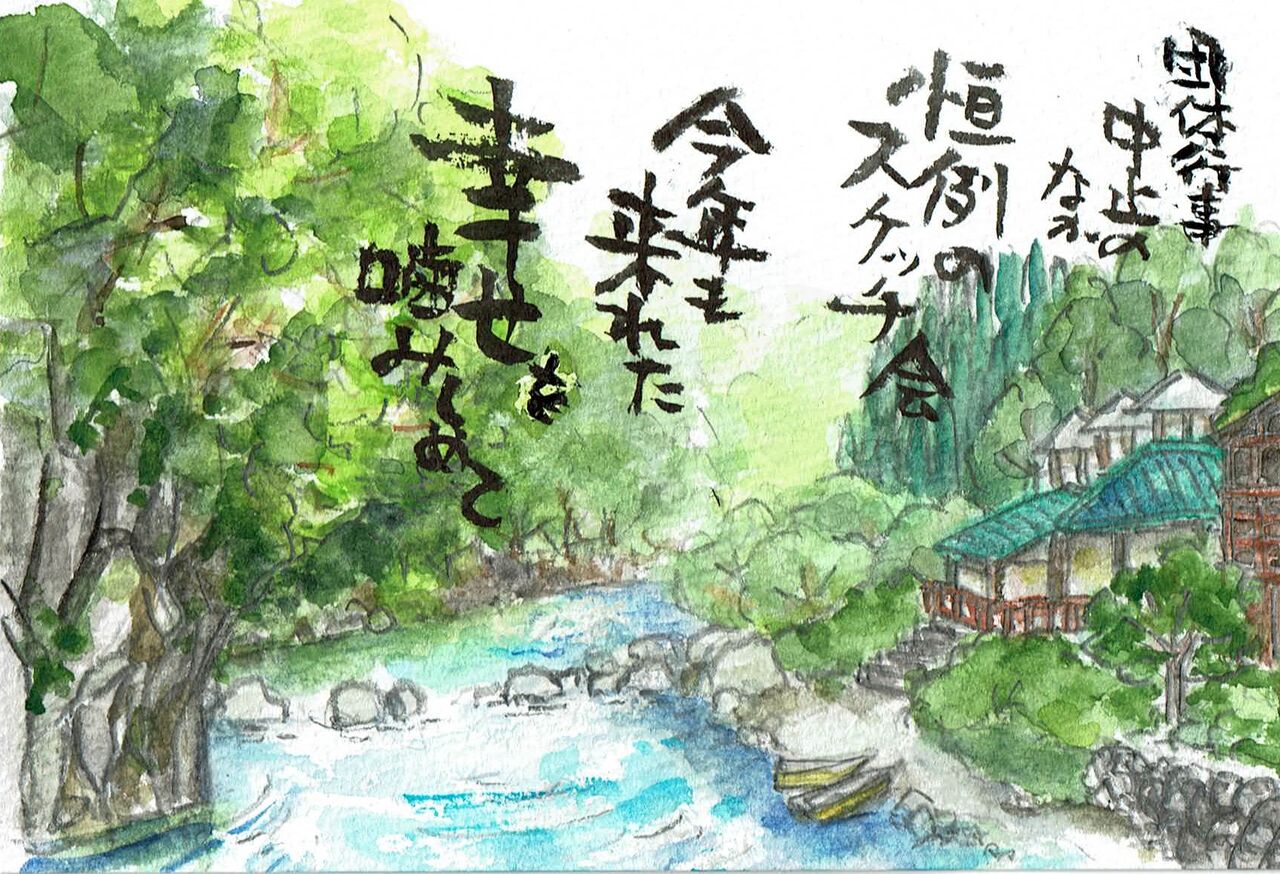 団体行事
中止の
なか
恒例の
スケッチ会
今年も
来れた
幸せを
噛みしめて